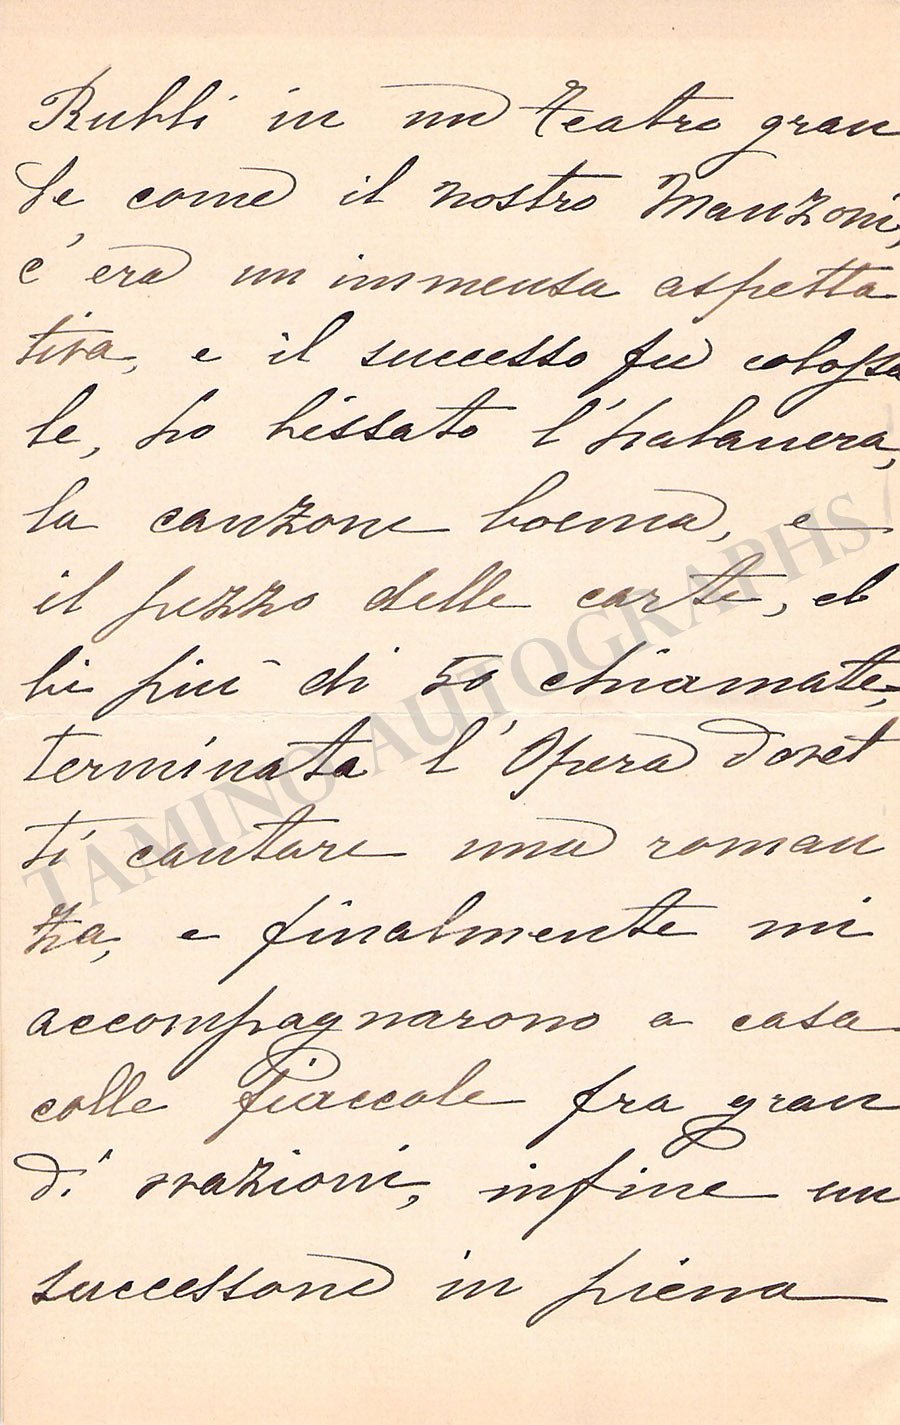 Rubli in un teatro gran
de come il nostro Manzoni,
c'era un immensa aspetta
tiva, e il successo fu colossa
le, ho bissato l'habanera,
la canzone boema, e
il pezzo delle carte, eb
bi più di 50 chiamate,
terminata l'Opera dovet
ti cantare una roman
za, e finalmente mi
accompagnarono a casa
colle fiaccole fra gran
di ovazioni, infine un
successone in piena
TAMINO AUTOGRAPHS